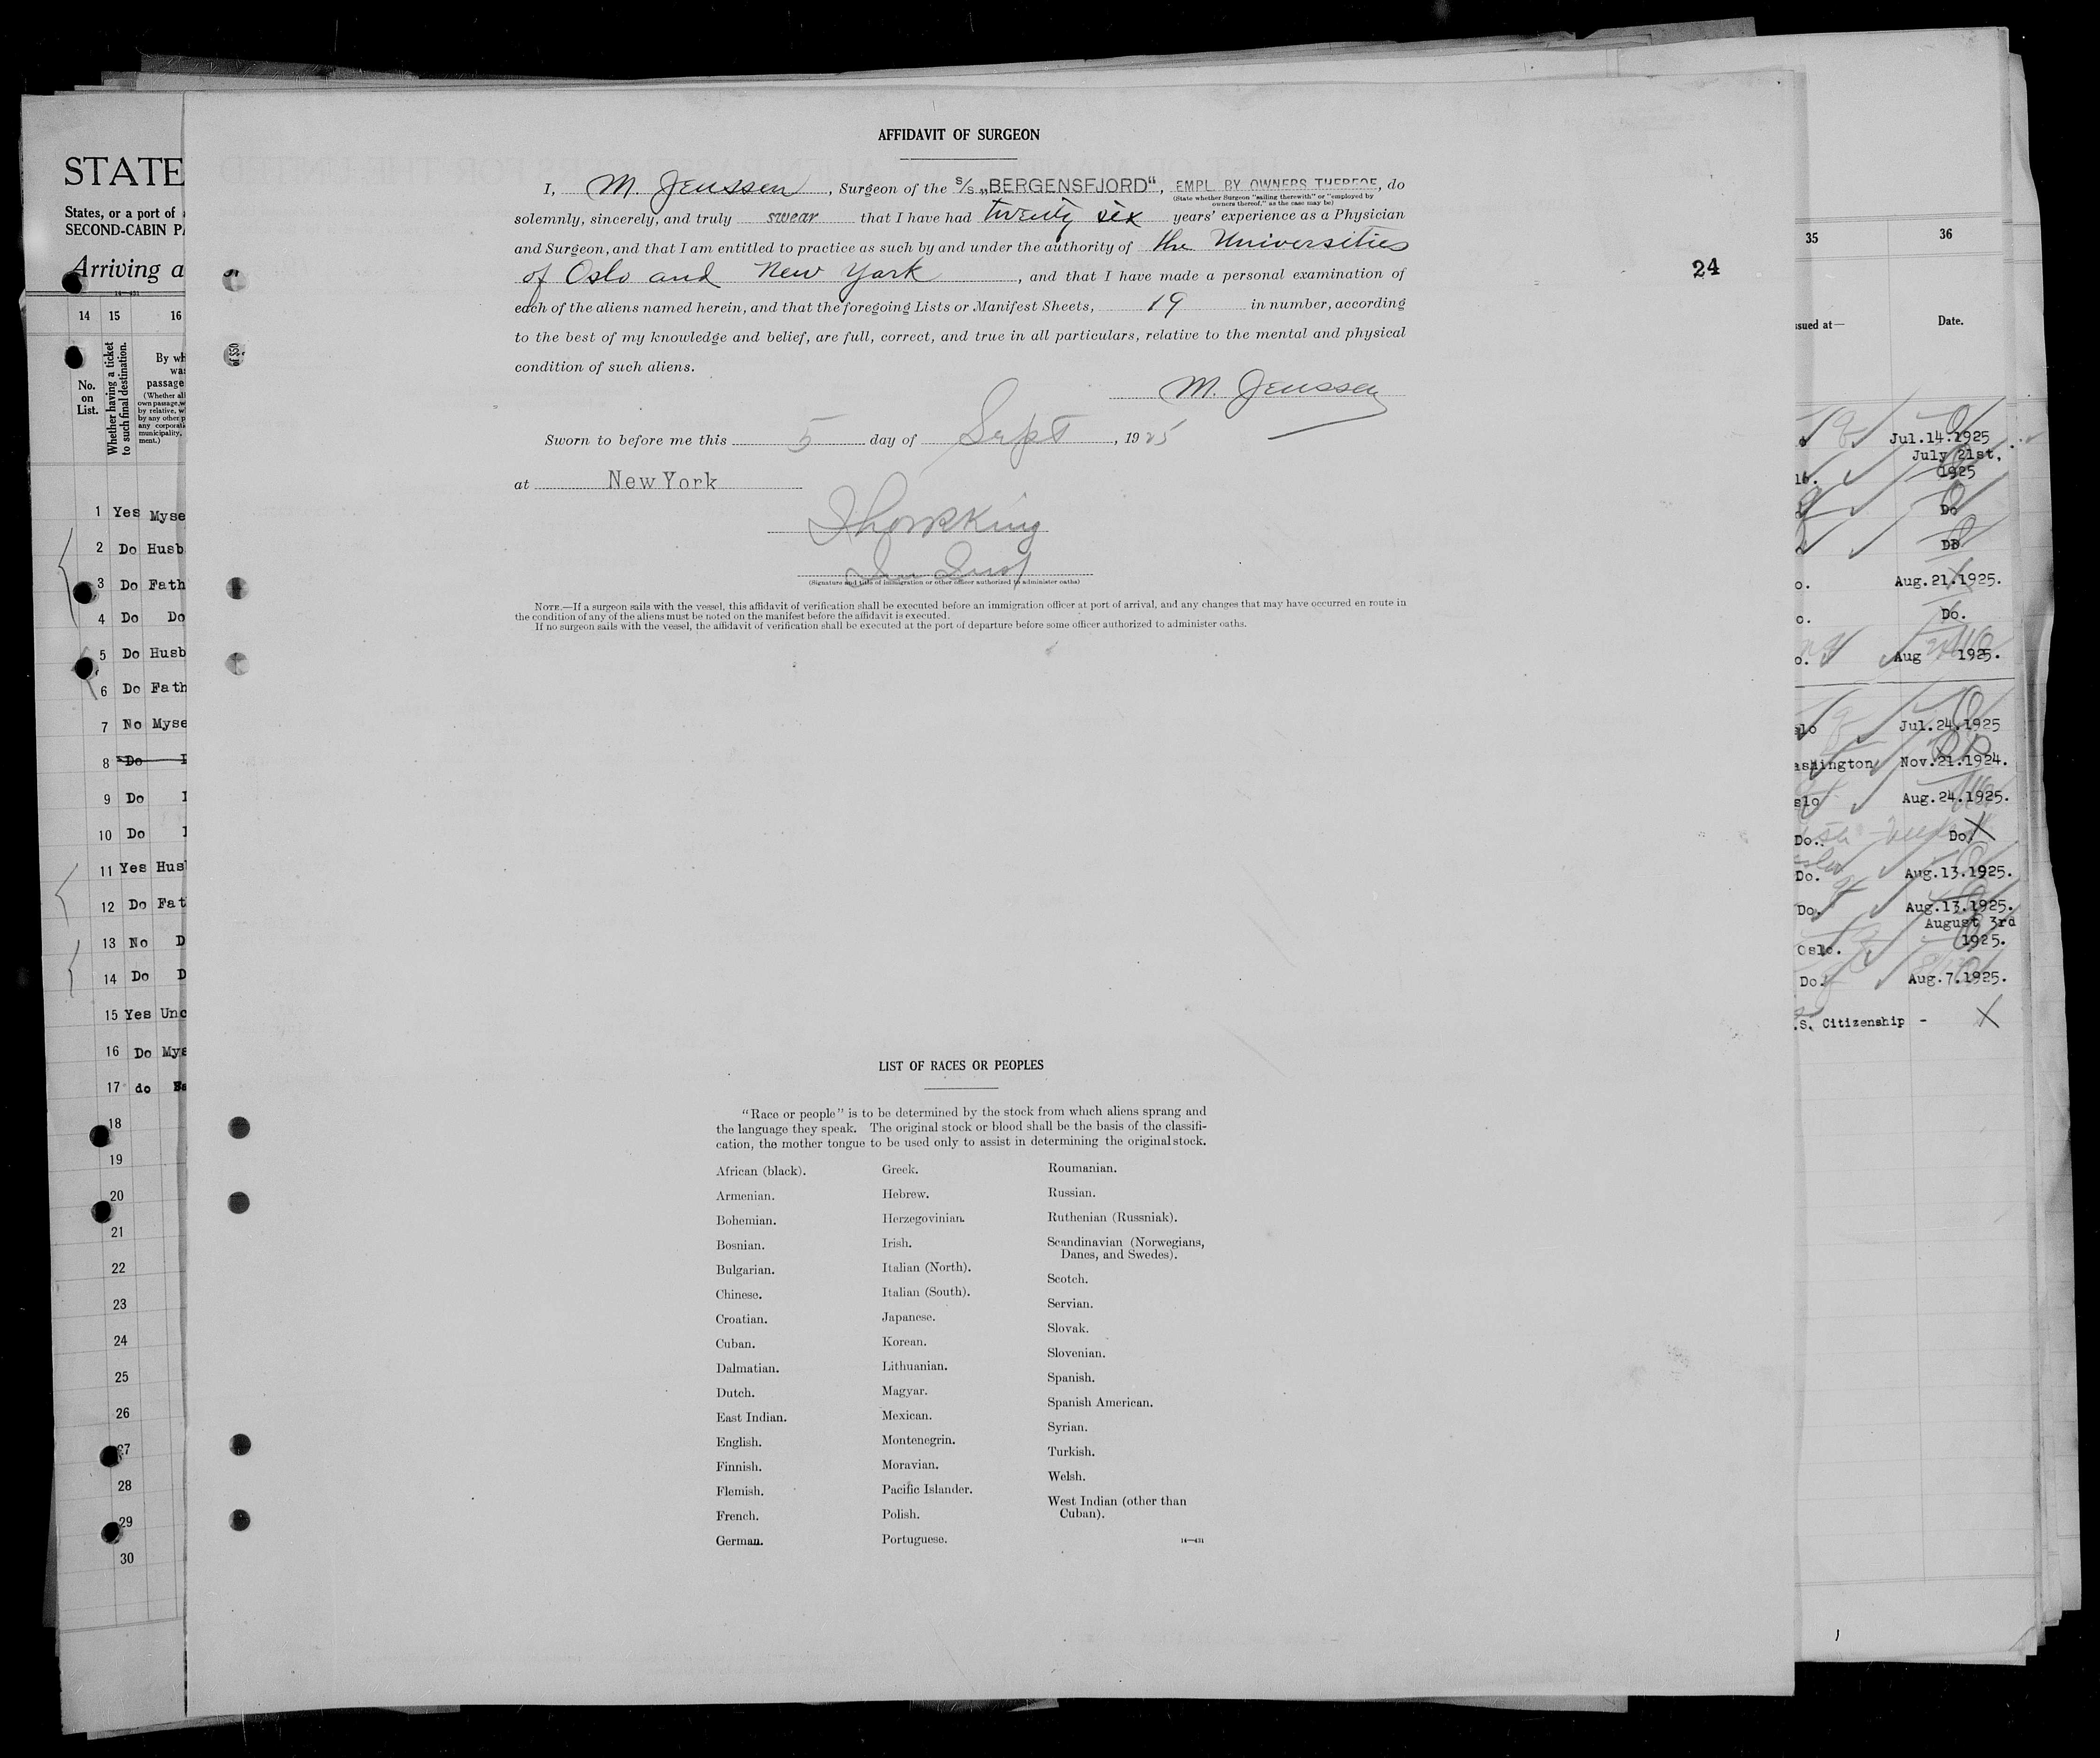 STATE
States, or a port of
SECOND-CABIN PA
Arriving a
14—431
14 15 16
No. on List.
Whether having a ticket to such final destination.
By wh
was
passage
(Whether ali
own passage, w
by relative, w
by any other p
any corporati
municipality,
ment.)
1 Yes Myse
2 Do Husb
3 Do Fath
4 Do Do
5 Do Husb
6 Do Fath
7 No Myse
8 Do
9 Do
10 Do
11 Yes Hus
12 Do Fat
13 No D
14 Do D
15 Yes Unc
16 Do Mys
17 do
18
19
20
21
22
23
24
25
26
27
28
29
30
AFFIDAVIT OF SURGEON
I, M. Jenssen, Surgeon of the S/S „BERGENSFJORD“, EMPL. BY OWNERS THEREOF, do
(State whether Surgeon "sailing therewith" or "employed by
owners thereof," as the case may be)
solemnly, sincerely, and truly swear that I have had twenty six years' experience as a Physician
and Surgeon, and that I am entitled to practice as such by and under the authority of the Universities
of Oslo and New York, and that I have made a personal examination of
each of the aliens named herein, and that the foregoing Lists or Manifest Sheets, 19 in number, according
to the best of my knowledge and belief, are full, correct, and true in all particulars, relative to the mental and physical
condition of such aliens.
M. Jenssen
Sworn to before me this 5 day of Sept, 1925
at New York
(Signature and title of immigration or other officer authorized to administer oaths)
NOTE.—If a surgeon sails with the vessel, this affidavit of verification shall be executed before an immigration officer at port of arrival, and any changes that may have occurred en route in
the condition of any of the aliens must be noted on the manifest before the affidavit is executed.
If no surgeon sails with the vessel, the affidavit of verification shall be executed at the port of departure before some officer authorized to administer oaths.
24
LIST OF RACES OR PEOPLES
"Race or people" is to be determined by the stock from which aliens sprang and
the language they speak. The original stock or blood shall be the basis of the classifi-
cation, the mother tongue to be used only to assist in determining the original stock.
African (black).
Armenian.
Bohemian.
Bosnian.
Bulgarian.
Chinese.
Croatian.
Cuban.
Dalmatian.
Dutch.
East Indian.
English.
Finnish.
Flemish.
French.
German.
Greek.
Hebrew.
Herzegovinian.
Irish.
Italian (North).
Italian (South).
Japanese.
Korean.
Lithuanian.
Magyar.
Mexican.
Montenegrin.
Moravian.
Pacific Islander.
Polish.
Portuguese.
Roumanian.
Russian.
Ruthenian (Russniak).
Scandinavian (Norwegians,
Danes, and Swedes).
Scotch.
Servian.
Slovak.
Slovenian.
Spanish.
Spanish American.
Syrian.
Turkish.
Welsh.
West Indian (other than
Cuban).
14—431
35 36
ssued at— Date.
Jul.14.1925
July 21st,
1925
Do
Do
o. Aug.21.1925.
o. Do.
o. Aug 1925.
slo Jul.24.1925
ashington Nov.21.1924.
slo Aug.24.1925.
Do. Do.
Do. Aug.13.1925.
Do. Aug.13.1925.
August 3rd
Oslo. 1925.
Do. Aug.7.1925.
.S. Citizenship -